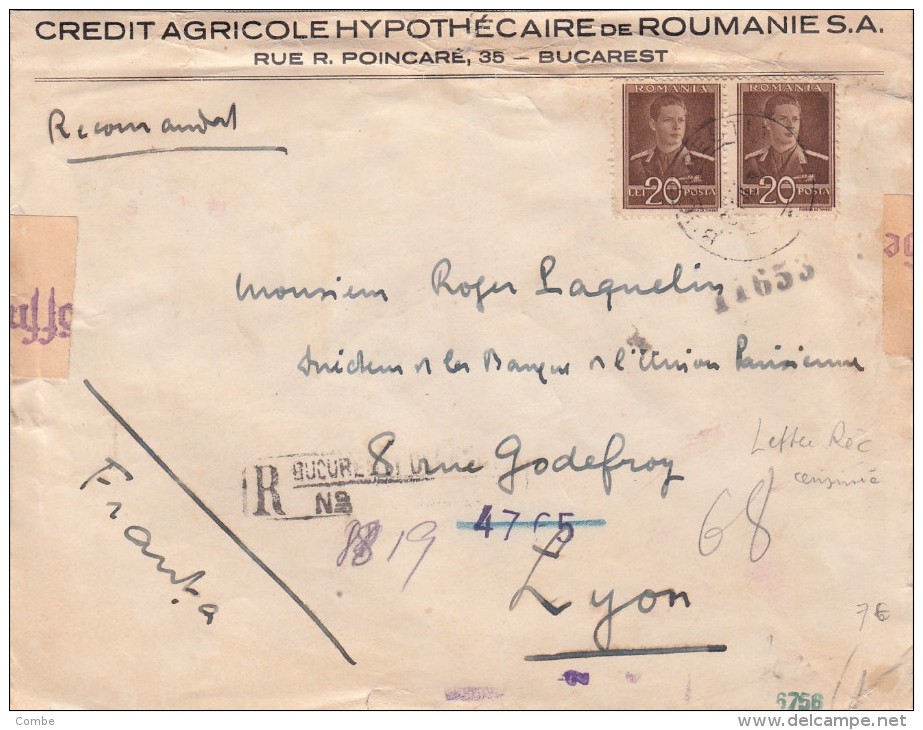 CREDIT AGRICOLE HYPOTHÉCAIRE DE ROUMANIE S.A.
RUE R. POINCARÉ, 35 – BUCAREST
Recomandat
ROMANIA
LEI 20 POSTA
ROMANIA
LEI 20 POSTA
Monsieur Roger Laquelin
11653
de la Banque de l'Union Parisienne
8 rue Godefroy
Lettre Réc
censuré
R BUCURE
No
4765
68
8819
Lyon
Franța
7€
6756
Combe
www.delcampe.net